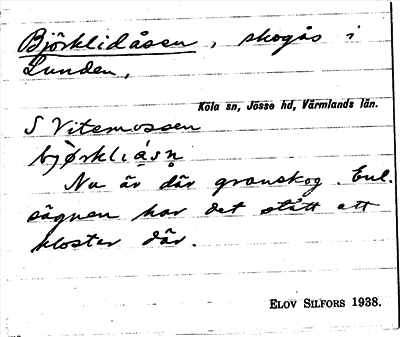 Björklidåsen, skogås i
Lunden,
Köla sn, Jösse hd, Värmlands län.
S Vitemossen
Nu är där granskog. Enl.
sägnen har det stått ett
kloster där.
ELOV SILFORS 1938.